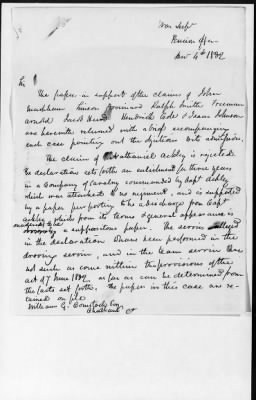 War Dept
Pension Office
Nov 4th 1832
Sir
The papers in support of the claims of John
Simeon Ralph Smith Freeman
Arnold Jacob Hendrick Cole & Isaac Johnson
are herewith returned with a brief accompanying
each case pointing out the objections to its admission.
The claim of Nathaniel Ackley is rejected.
The declaration sets forth an enlistment for three years
in a Company of Cavalry commanded by Capt Ackley
which was attached to no regiment, and is supported
by a paper purporting to be a discharge from Capt
Ackley which from its terms & general appearance is
a supposititious paper. The service alleged
in the declaration to have been performed in the
service, and in the team service
not such as come within the provisions of the
act of 7 June 1832 as far as can be determined from
the facts set forth. The papers in this case are re-
tained on file
William G. Comstock Esq.
Chatham Ct